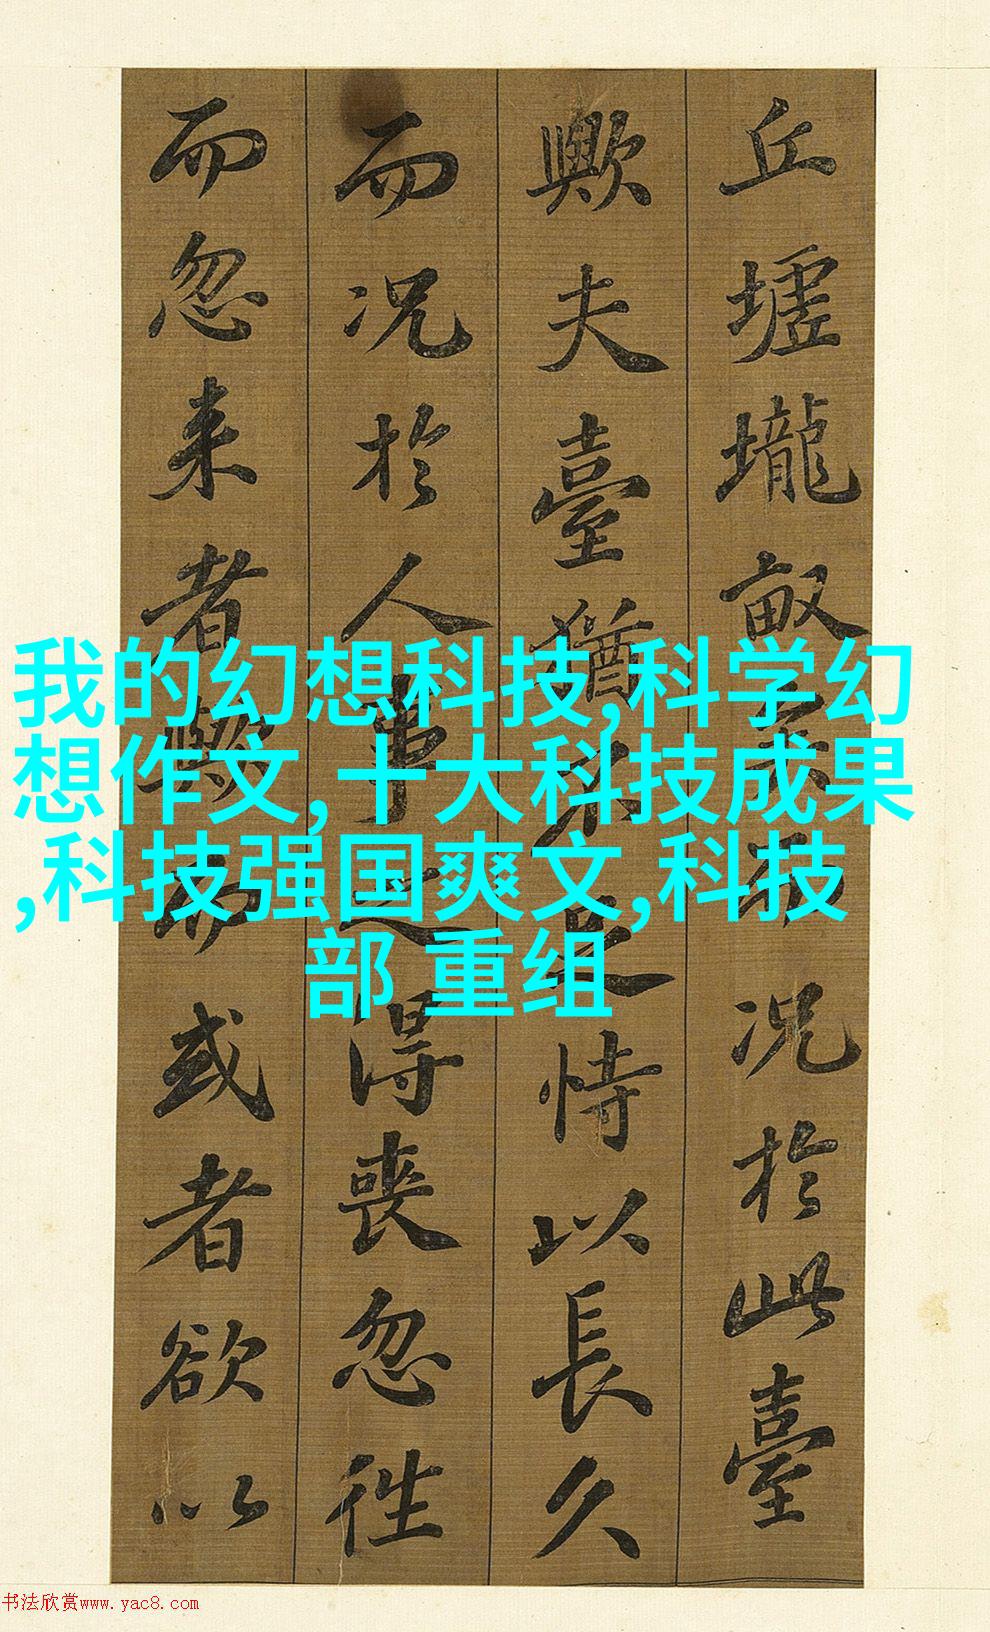 丘墟壠畝矣而况於此臺
歟夫臺猶不足恃以長久
而况於人事之得喪忽徃
而忽来者歟而或者欲以
我的幻想科技,科学幻
想作文,十大科技成果
,科技强国爽文,科技
部 重组
书法欣赏www.yac8.com